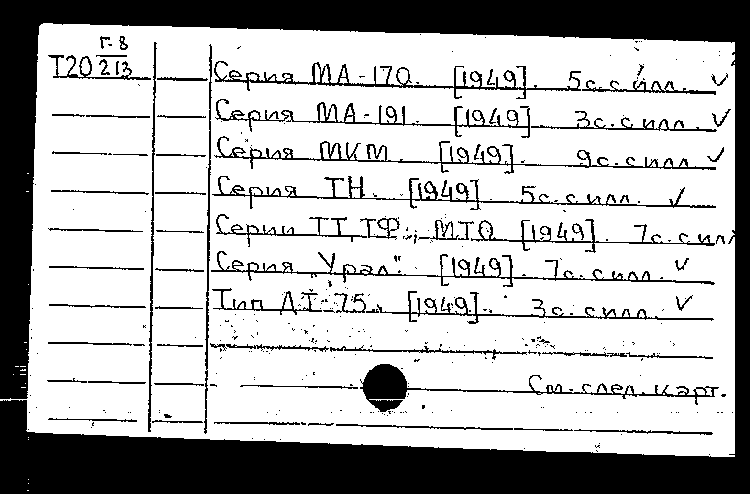 Г-8
Т20 213
Серия МА-170. [1949]. 5с. с илл. ✓
Серия МА-191. [1949]. 3с. с илл. ✓
Серия МКМ. [1949]. 9с. с илл. ✓
Серия ТН. [1949]. 5с. с илл. ✓
Серии ТТ, ТФ, МТО [1949]. 7с. с илл
Серия „Урал“. [1949]. 7с. с илл. ✓
Тип ДТ-75. [1949]. 3с. с илл. ✓
См. след. карт.